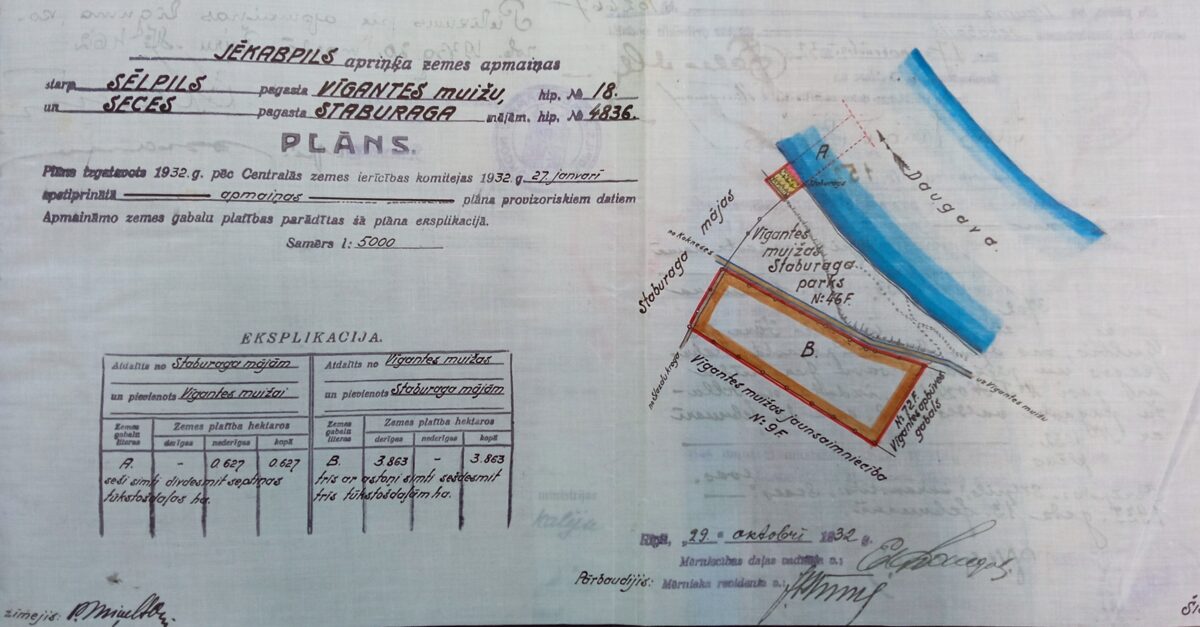 JĒKABPILS apriņķa zemes apmaiņas
starp SĒLPILS pagasta VĪGANTES MUIŽU, hip. № 18.
un SECES pagasta STABURAGA mājām. hip. № 4836.
PLĀNS.
Plāns izgatavots 1932.g. pēc Centralās zemes ierīcības komitejas 1932.g. 27. janvarī
apstiprinātā apmaiņas plāna provizoriskiem datiem
Apmaināmo zemes gabalu platības parādītas šā plāna eksplikacijā.
Samērs 1: 5000
EKSPLIKACIJA.
Atdalīts no Staburaga mājām
un pievienots Vīgantes muižai
Zemes gabala literas
Zemes platība hektaros
derīgas nederīgas kopā
A. - 0.627 0.627
seši simti divdesmit septiņas
tūkstošdaļas ha.
Atdalīts no Vīgantes muižas
un pievienots Staburaga mājām
Zemes gabala literas
Zemes platība hektaros
derīgas nederīgas kopā
B. 3.863 - 3.863
trīs ar astoņi simti sešdesmit
trīs tūkstošdaļām ha.
zīmējis:
A
Staburags
Daugava.
Staburaga mājas
no Kokneses
Vīgantes
muižas
Staburaga
parks
№ 46 F.
B.
uz Vīgantes muižu
Vīgantes muižas jaunsaimniecība
№ 9 F.
№ 72 F.
Vīgantes apbūves
gabals
Rīgā, „29" oktobrī 1932 g.
Mērniecības daļas vadītāja v.:
Pārbaudījis: Mērnieka revidenta v.: